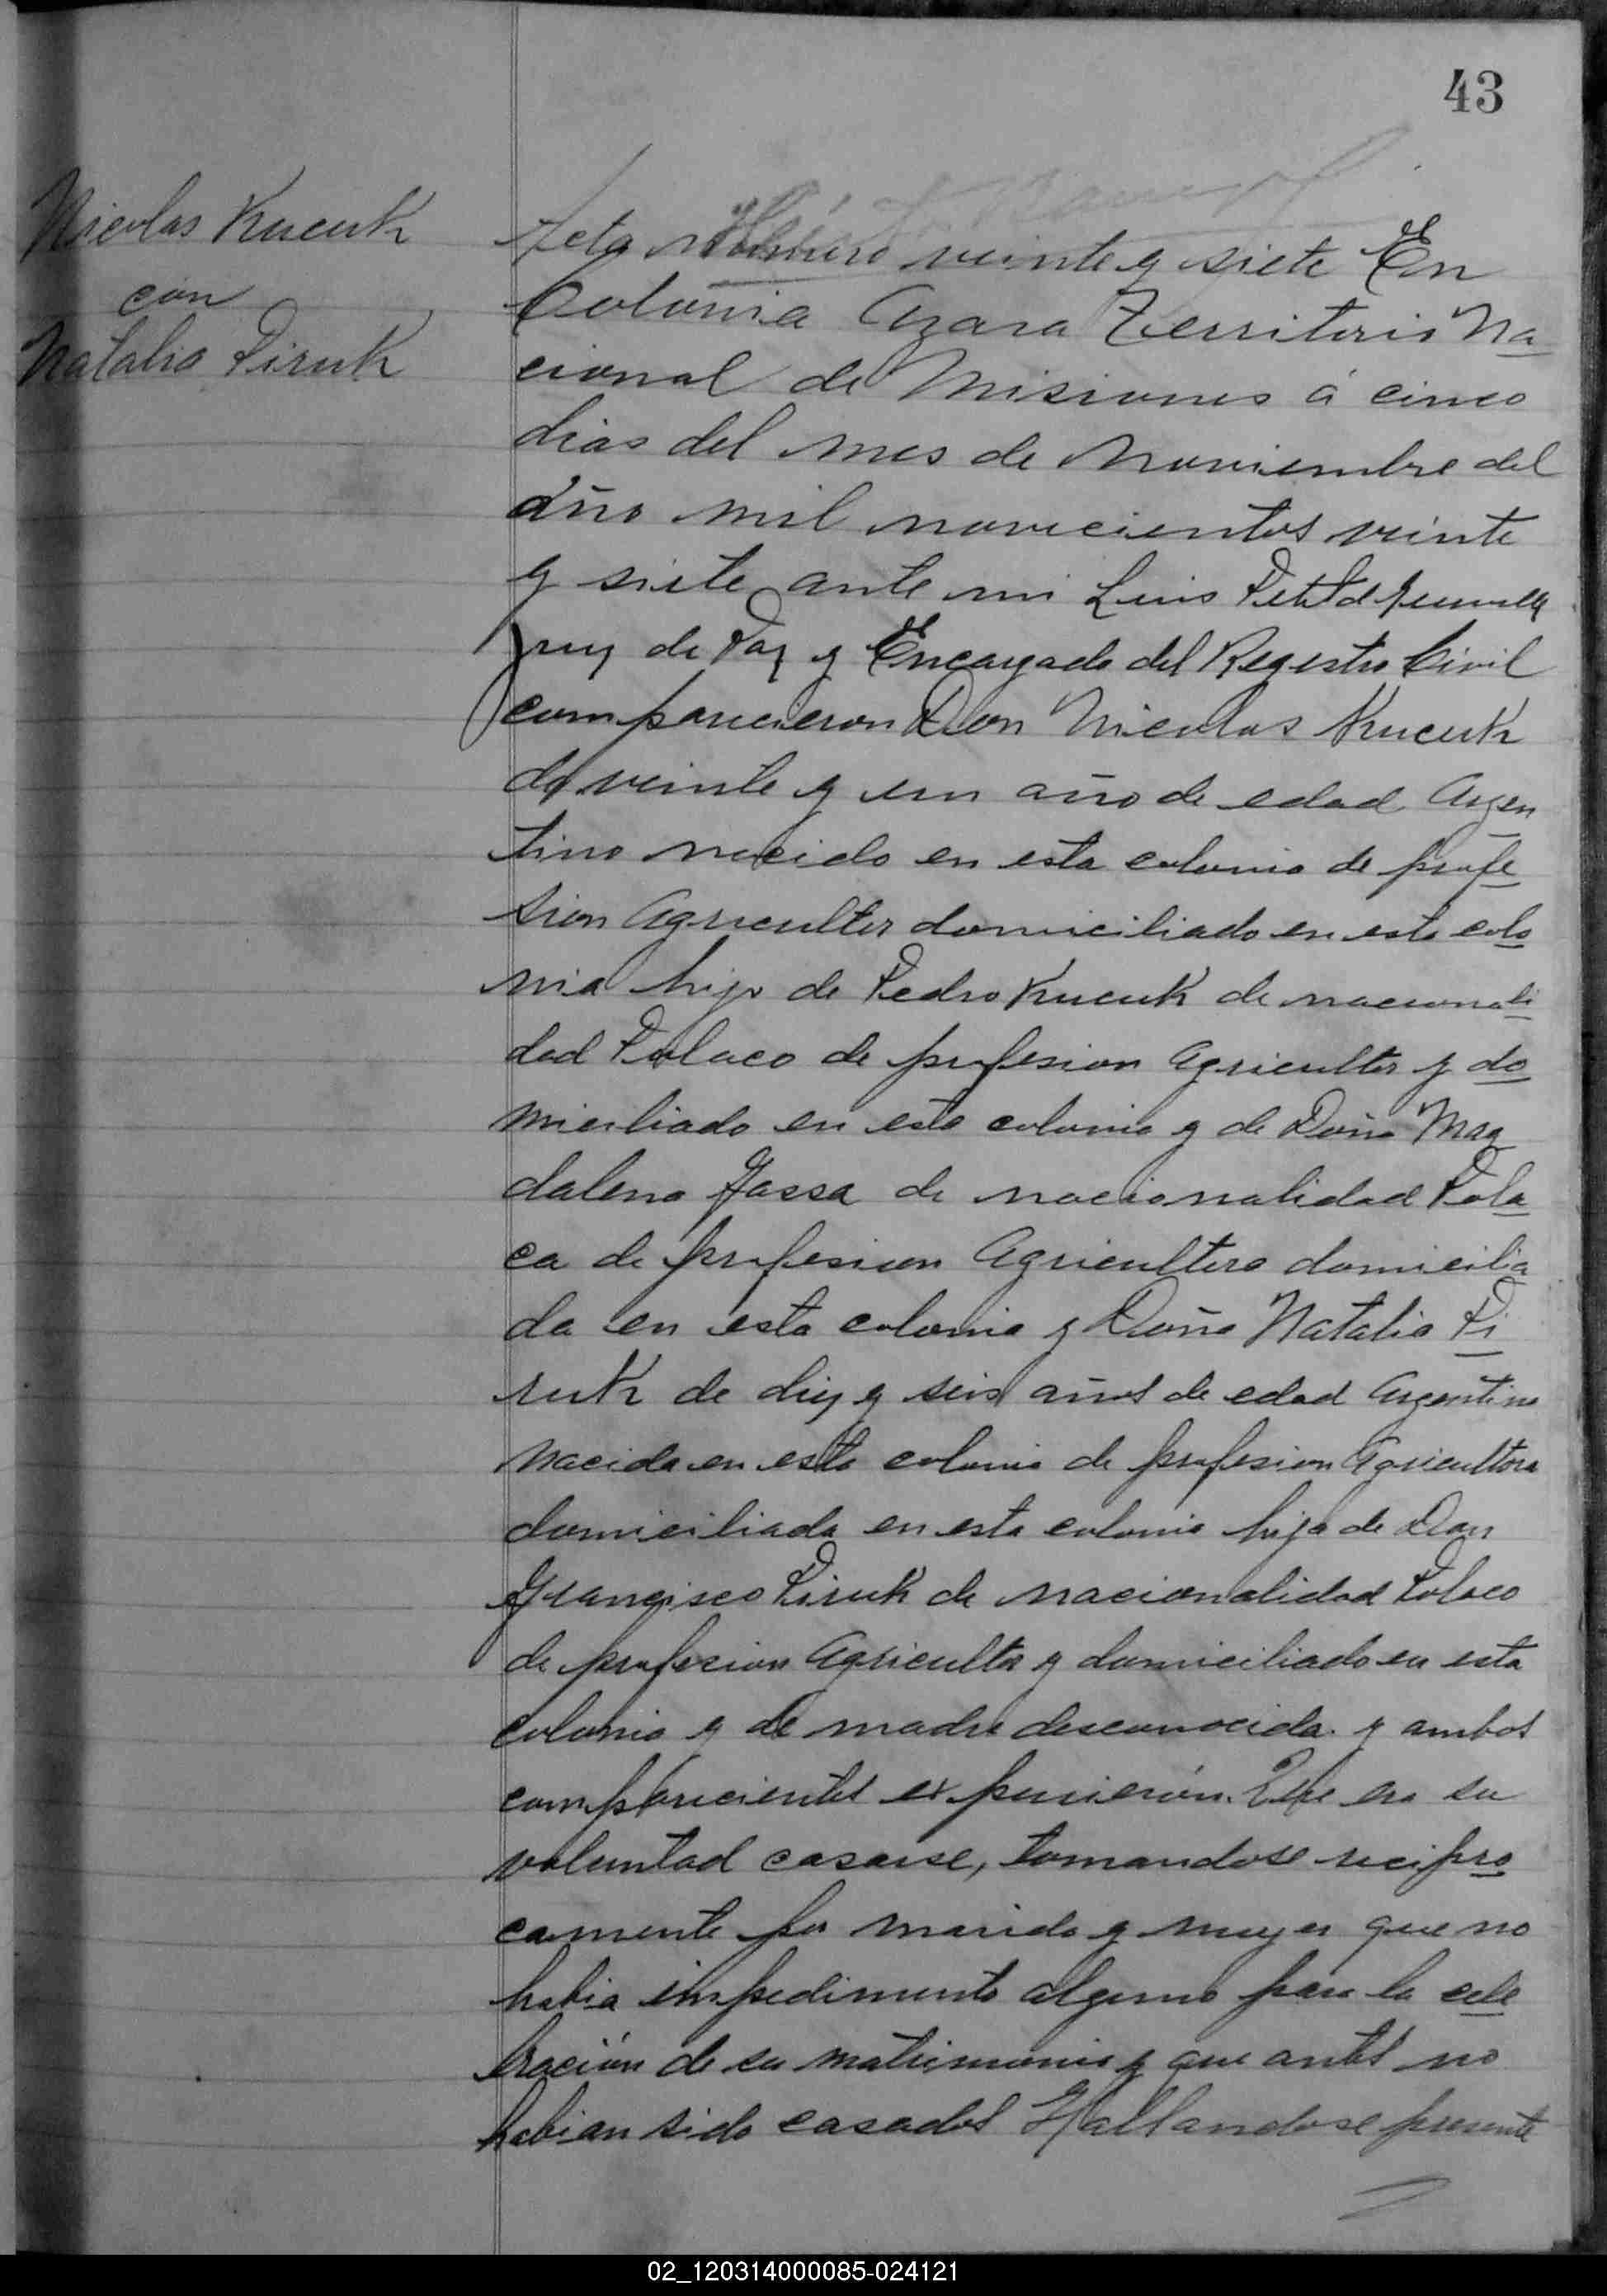 43
Nicolas Kucuk
con
Natalia Piruk
Acta Número veinte y siete En
Colonia Azara Territorio Na
cional de Misiones á cinco
dias del mes de Noviembre del
año mil novecientos veinte
y siete ante mi Luis Petit de
Juez de Paz y Encargado del Registro Civil
comparecieron Don Nicolas Kucuk
de veinte y un año de edad Argen
tino nacido en esta colonia de profe
sion Agricultor domiciliado en esta colo
nia hijo de Pedro Kucuk de nacionali
dad Polaco de profesion Agricultor y do
miciliado en esta colonia y de Doña Mag
dalena Jassa de nacionalidad Pola
ca de profesion Agricultora domicilia
da en esta colonia y Doña Natalia Pi
ruk de diez y seis años de edad Argentina
nacida en esta colonia de profesion Agricultora
domiciliada en esta colonia hija de Don
Francisco Piruk de nacionalidad Polaco
de profesion Agricultor y domiciliado en esta
colonia y de madre desconocida y ambos
comparecientes expusierón. Que era su
voluntad casarse, tomandose recipro
camente por marido y mujer que no
habia impedimento alguno para la cele
bración de su matrimonio y que antes no
habian sido casados Hallandose presente
02_120314000085-024121